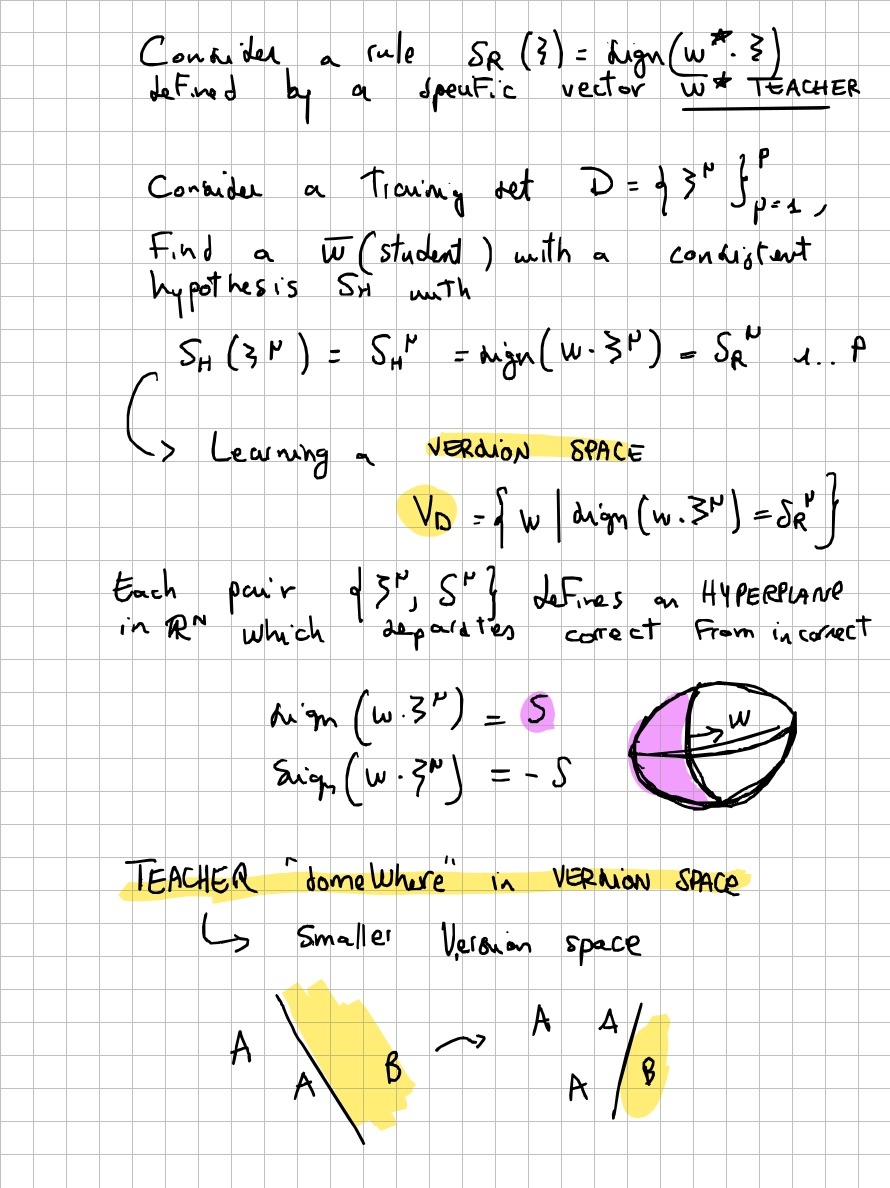 Consider a rule S_R (ξ) = sign(w* · ξ)
defined by a specific vector w* TEACHER
Consider a Training set D = { ξ^μ }_{μ=1}^P ,
Find a w̄ (student) with a consistent
hypothesis S_H with
S_H (ξ^μ) = S_H^μ = sign(w · ξ^μ) = S_R^μ 1.. P
↳ Learning a VERSION SPACE
V_D = { w | sign (w · ξ^μ) = S_R^μ }
Each pair { ξ^μ, S^μ } defines an HYPERPLANE
in ℝ^N which separates correct from incorrect
sign (w · ξ^μ) = S
Sign (w · ξ^μ) = - S
w
TEACHER "somewhere" in VERSION SPACE
↳ Smaller Version space
A A B → A A A B